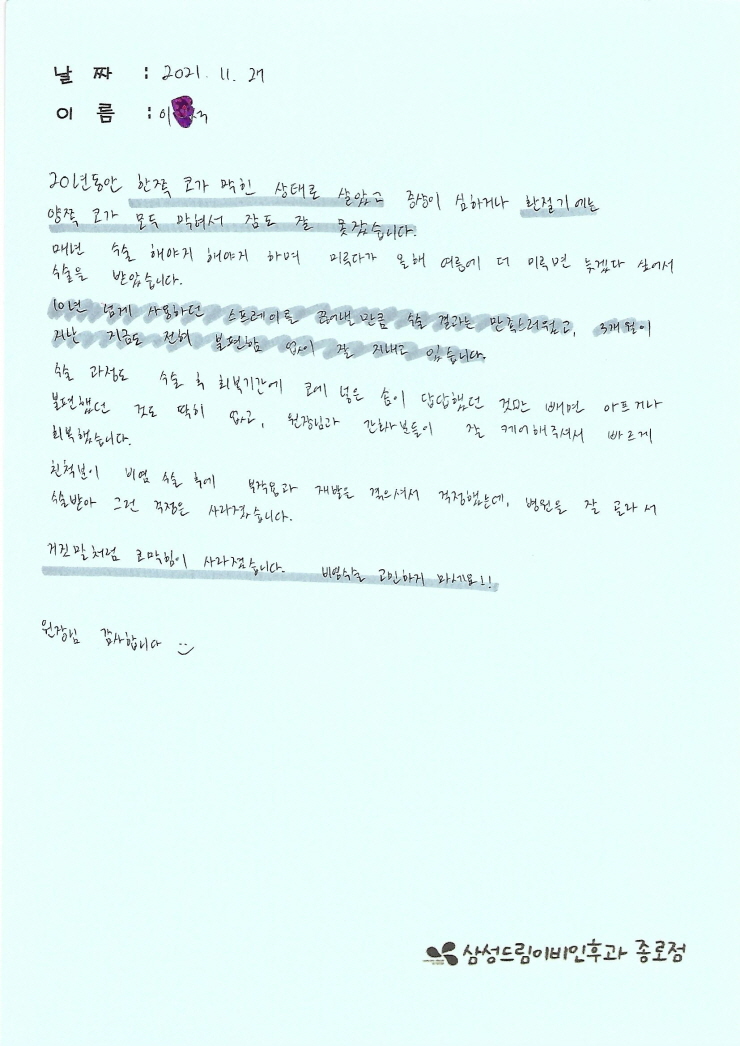 날 짜 : 2021. 11. 27
이 름 : 이
20년동안 한쪽 코가 막힌 상태로 살았고 증상이 심하거나 환절기에는
양쪽 코가 모두 막혀서 잠도 잘 못잤습니다.
매년 수술 해야지 해야지 하며 미루다가 올해 여름에 더 미루면 늦겠다 싶어서
수술을 받았습니다.
10년 넘게 사용하던 스프레이를 끊어낼만큼 수술 결과는 만족스러웠고, 3개월이
지난 지금도 전혀 불편함 없이 잘 지내고 있습니다.
수술 과정도 수술 후 회복기간에 코에 넣은 솜이 답답했던 것만 빼면 아프거나
불편했던 것도 딱히 없고, 원장님과 간호사분들이 잘 케어해주셔서 빠르게
회복했습니다.
친척분이 비염 수술 후에 부작용과 재발을 겪으셔서 걱정했는데, 병원을 잘 골라서
수술받아 그런 걱정은 사라졌습니다.
거짓말처럼 코막힘이 사라졌습니다. 비염수술 고민하지 마세요!!
원장님 감사합니다
삼성드림이비인후과 종로점